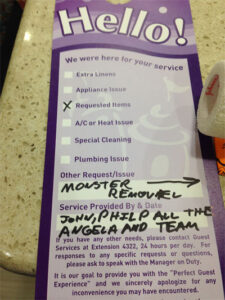 Hello!
We were here for your service
Extra Linens
Appliance Issue
X Requested Items
A/C or Heat Issue
Special Cleaning
Plumbing Issue
Other Request/Issue
MONSTER
REMOVAL
Service Provided By & Date
JOHN, PHILP ALL THE
ANGELA AND TEAM
If you have any other needs, please contact Guest
Services at Extension 4322, 24 hours per day. For
responses to any specific requests or questions,
please ask to speak with the Manager on Duty.
It is our goal to provide you with the "Perfect Guest
Experience" and we sincerely apologize for any
inconvenience you may have encountered.